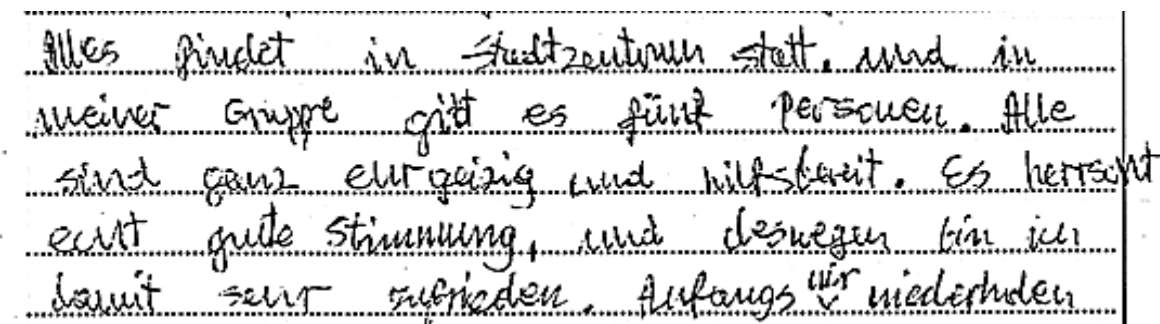 Alles findet in Stadtzentrum statt, und in
meiner Gruppe gibt es fünf Personen. Alle
sind ganz ehrgeizig und hilfsbereit. Es herrscht
echt gute Stimmung, und deswegen bin ich
damit sehr zufrieden. Anfangs wir